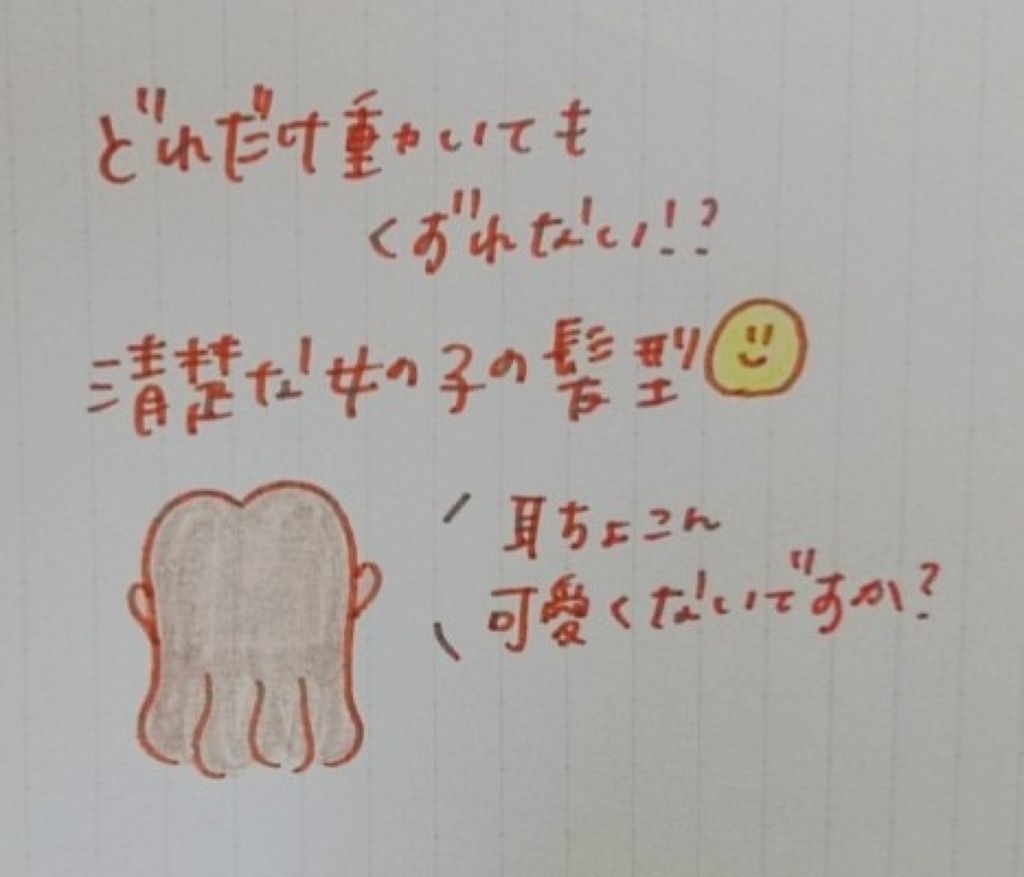 どれだけ動いても
くずれない!?
清楚な女の子の髪型
耳ちょこん
可愛くないですか?